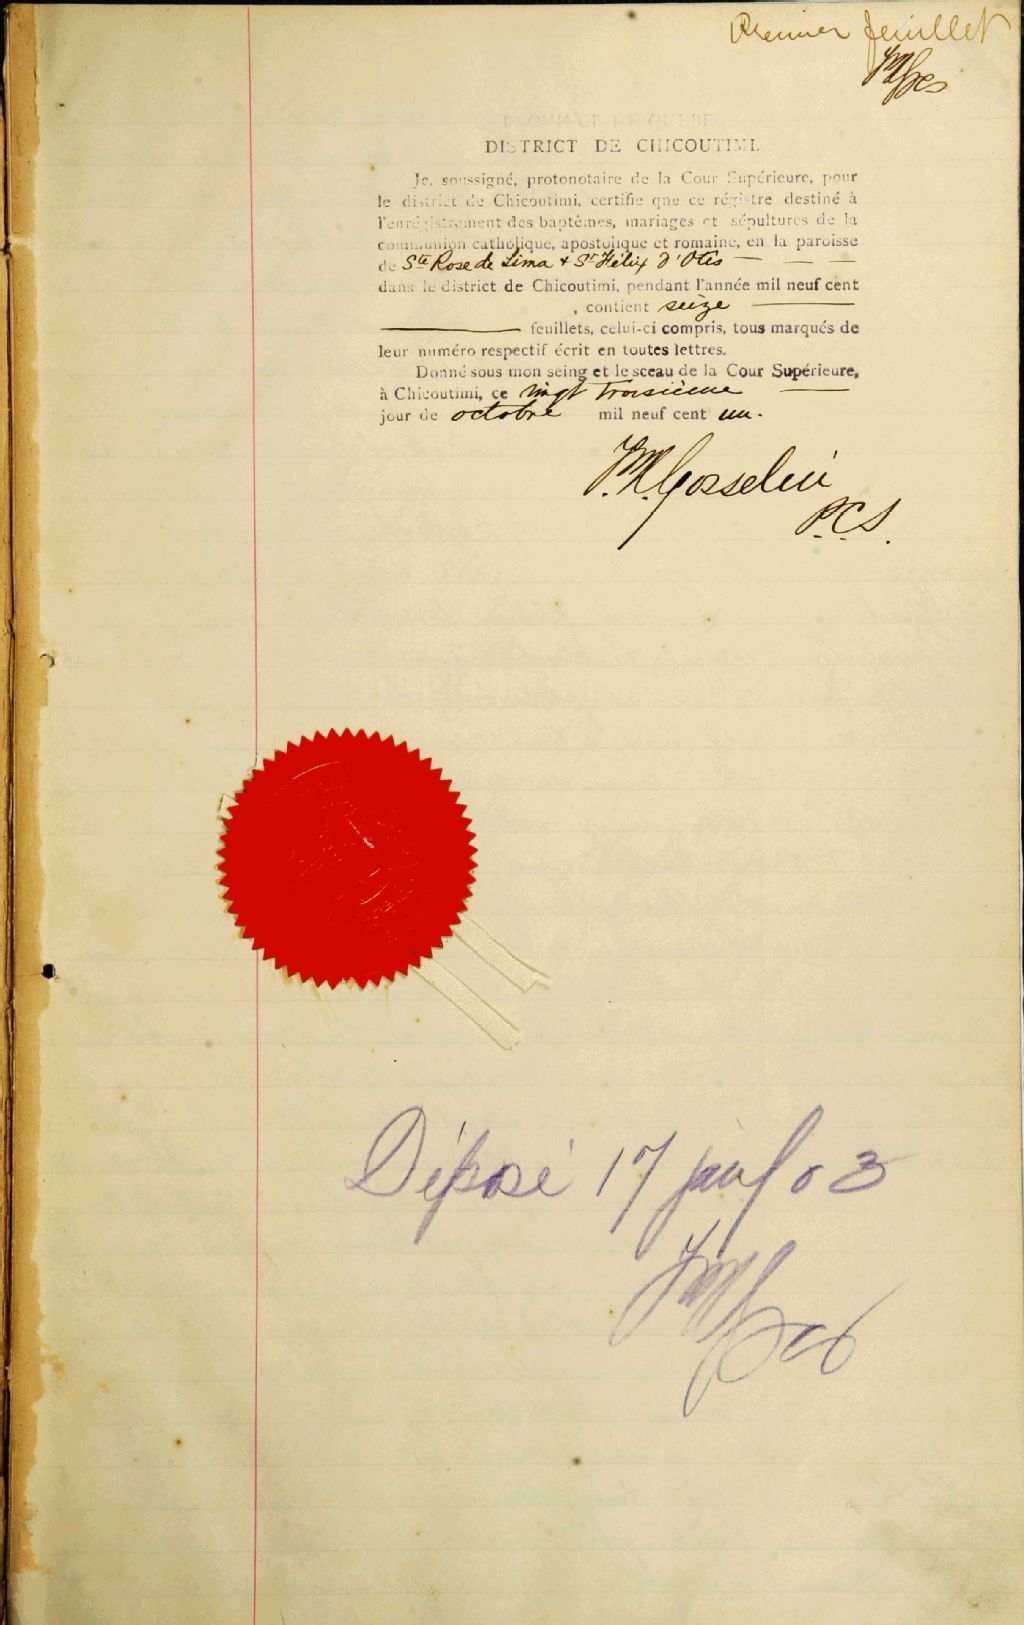 Premier feuillet
PROVINCE DE QUÉBEC
DISTRICT DE CHICOUTIMI.
Je, soussigné, protonotaire de la Cour Supérieure, pour
le district de Chicoutimi, certifie que ce régistre destiné à
l'enrégistrement des baptêmes, mariages et sépultures de la
communion catholique, apostolique et romaine, en la paroisse
de Ste Rose de Lima & St Félix d'Otis — — —
dans le district de Chicoutimi, pendant l'année mil neuf cent
, contient seize ———
——— feuillets, celui-ci compris, tous marqués de
leur numéro respectif écrit en toutes lettres.
Donné sous mon seing et le sceau de la Cour Supérieure,
à Chicoutimi, ce vingt troisième ———
jour de octobre mil neuf cent un.
Gosselin
P.C.S.
Déposé 17 janv 03